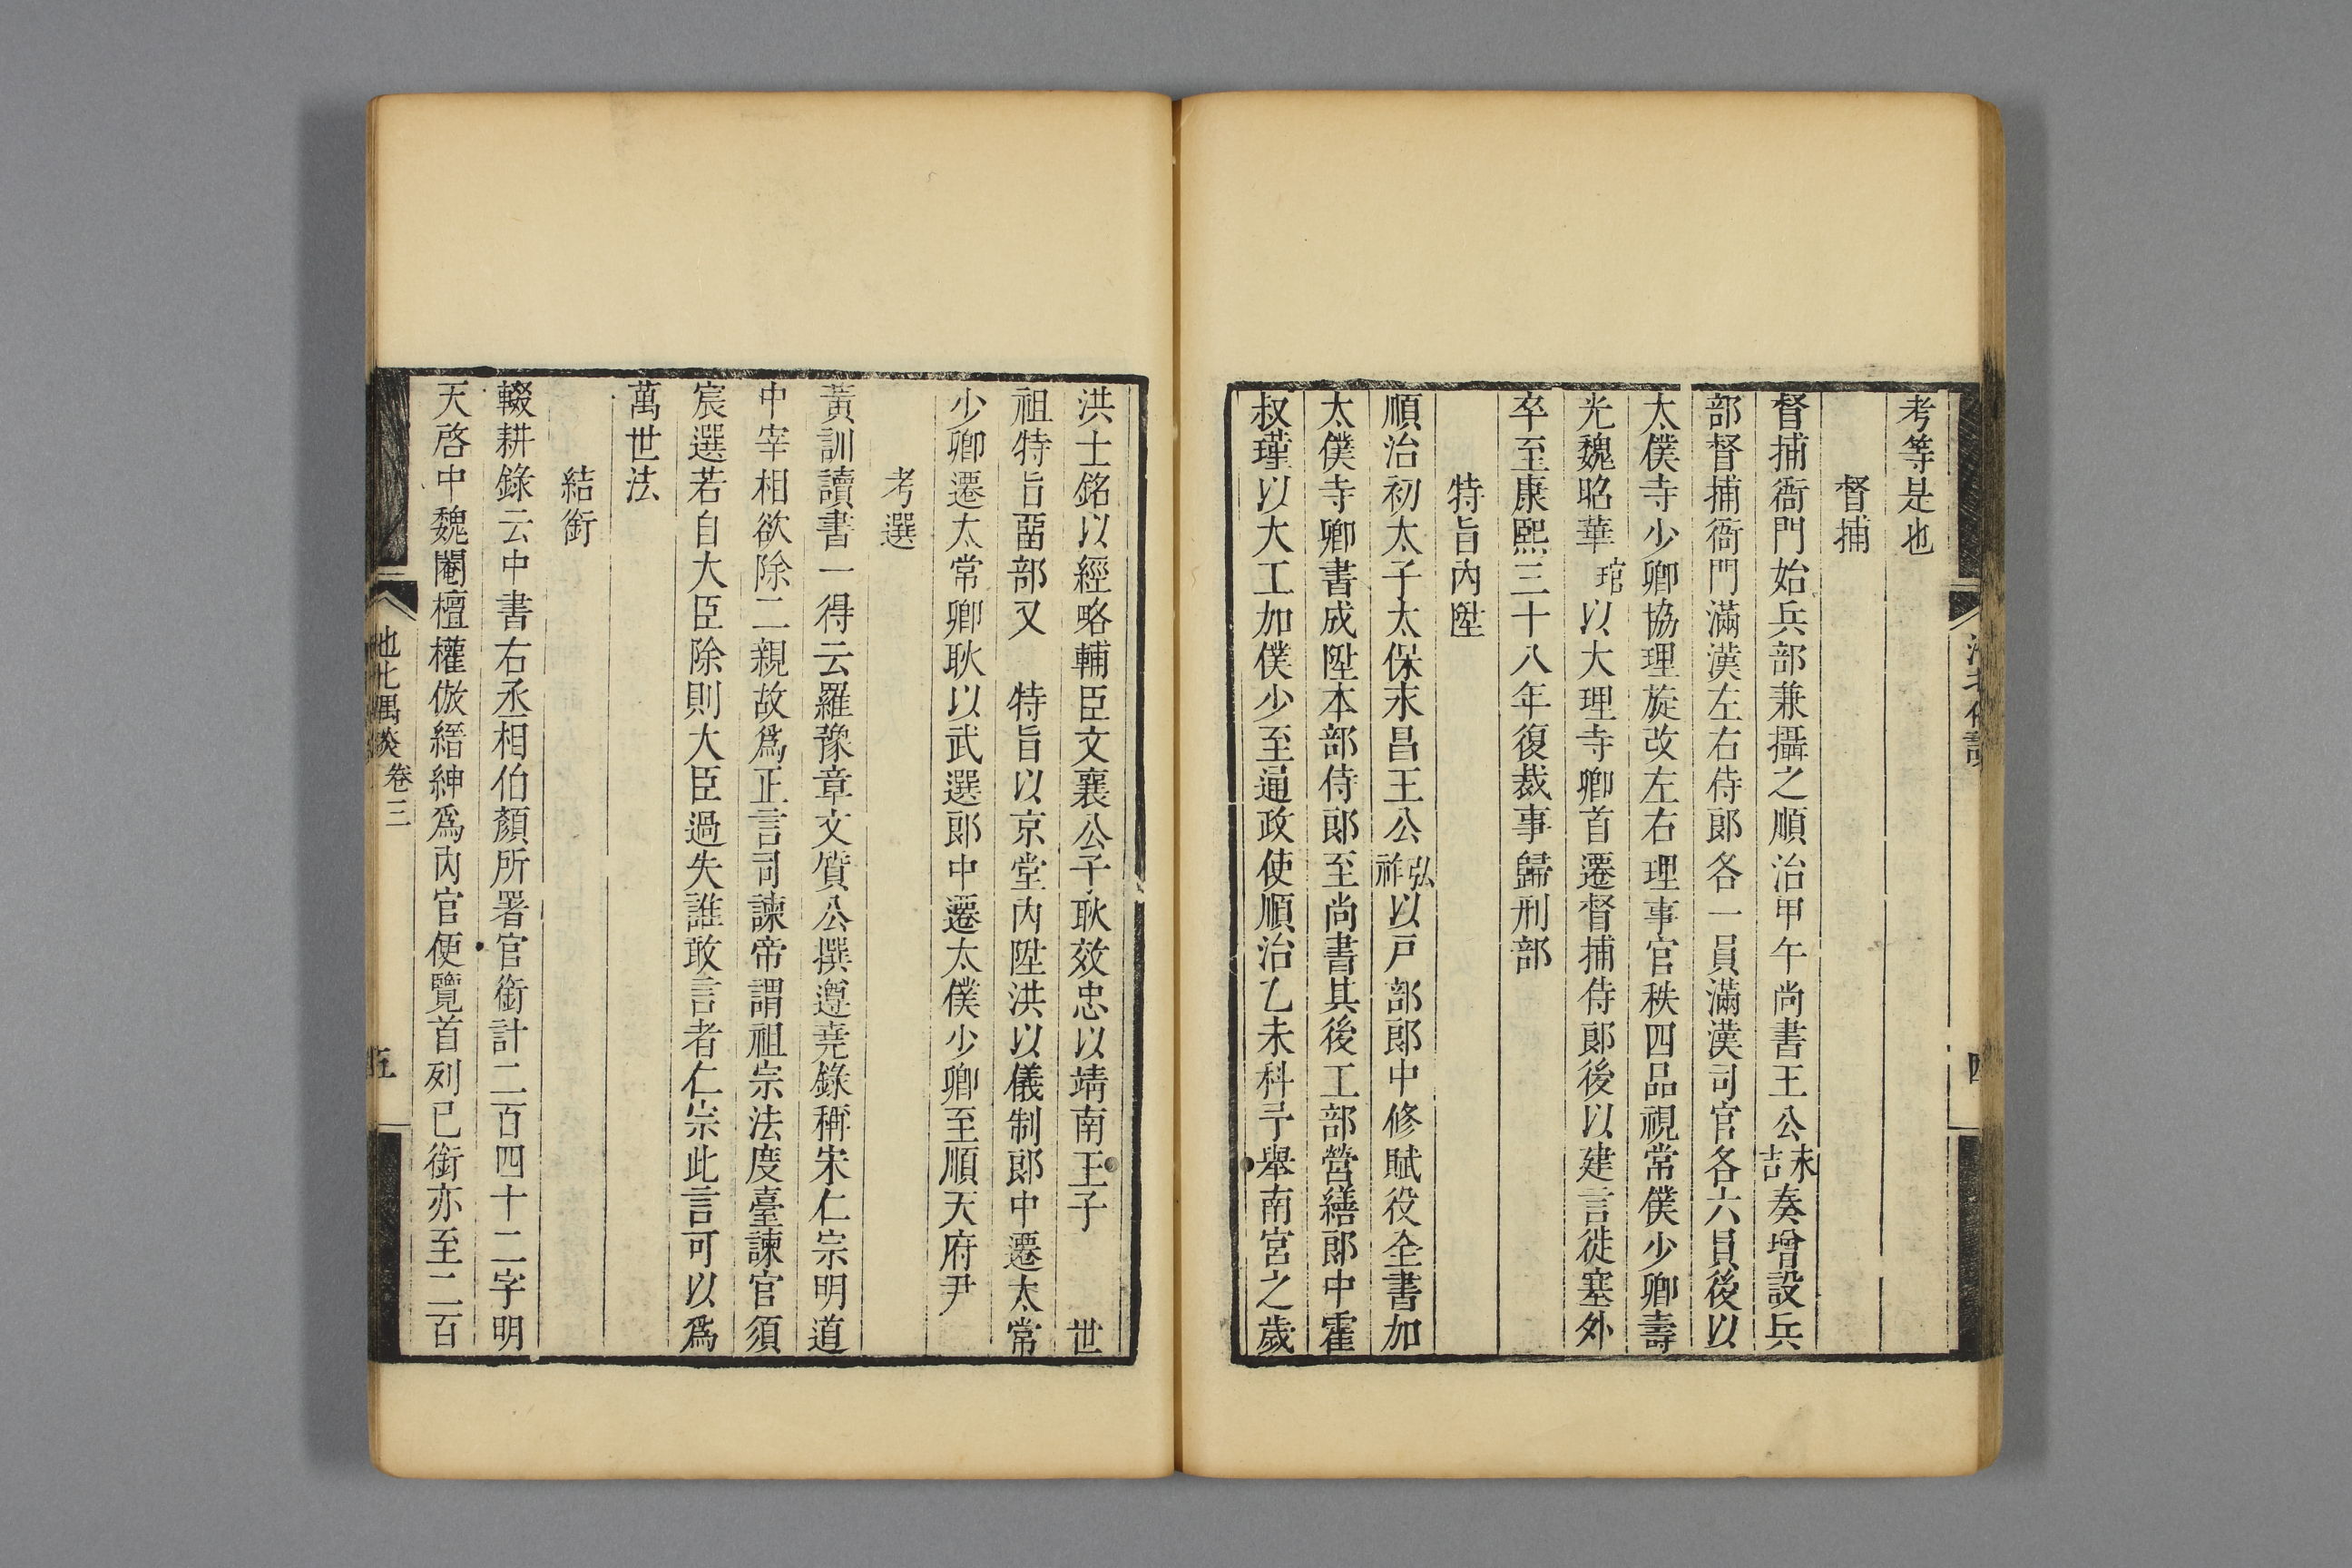 考等是也
督捕
督捕衙門始兵部兼攝之順治甲午尚書王公永吉奏增設兵
部督捕衙門滿漢左右侍郎各一員滿漢司官各六員後以
太僕寺少卿協理旋改左右理事官秩四品視常僕少卿壽
光魏昭華琯以大理寺卿首遷督捕侍郎後以建言徙塞外
卒至康熙三十八年復裁事歸刑部
特旨內陞
順治初太子太保永昌王公弘祚以戶部郎中修賦役全書加
太僕寺卿書成陞本部侍郎至尚書其後工部營繕郎中霍
叔瑾以大工加僕少至通政使順治乙未科予舉南宮之歲
洪士銘以經略輔臣文襄公子耿效忠以靖南王子 世
祖特旨畱部又 特旨以京堂內陞洪以儀制郎中遷太常
少卿遷太常卿耿以武選郎中遷太僕少卿至順天府尹
考選
黃訓讀書一得云羅豫章文質公撰遵堯錄稱宋仁宗明道
中宰相欲除二親故爲正言司諫帝謂祖宗法度臺諫官須
宸選若自大臣除則大臣過失誰敢言者仁宗此言可以爲
萬世法
結銜
輟耕錄云中書右丞相伯顏所署官銜計二百四十二字明
天啓中魏閹檀權倣縉紳爲內官便覽首列已銜亦至二百
池北偶談 卷三 五